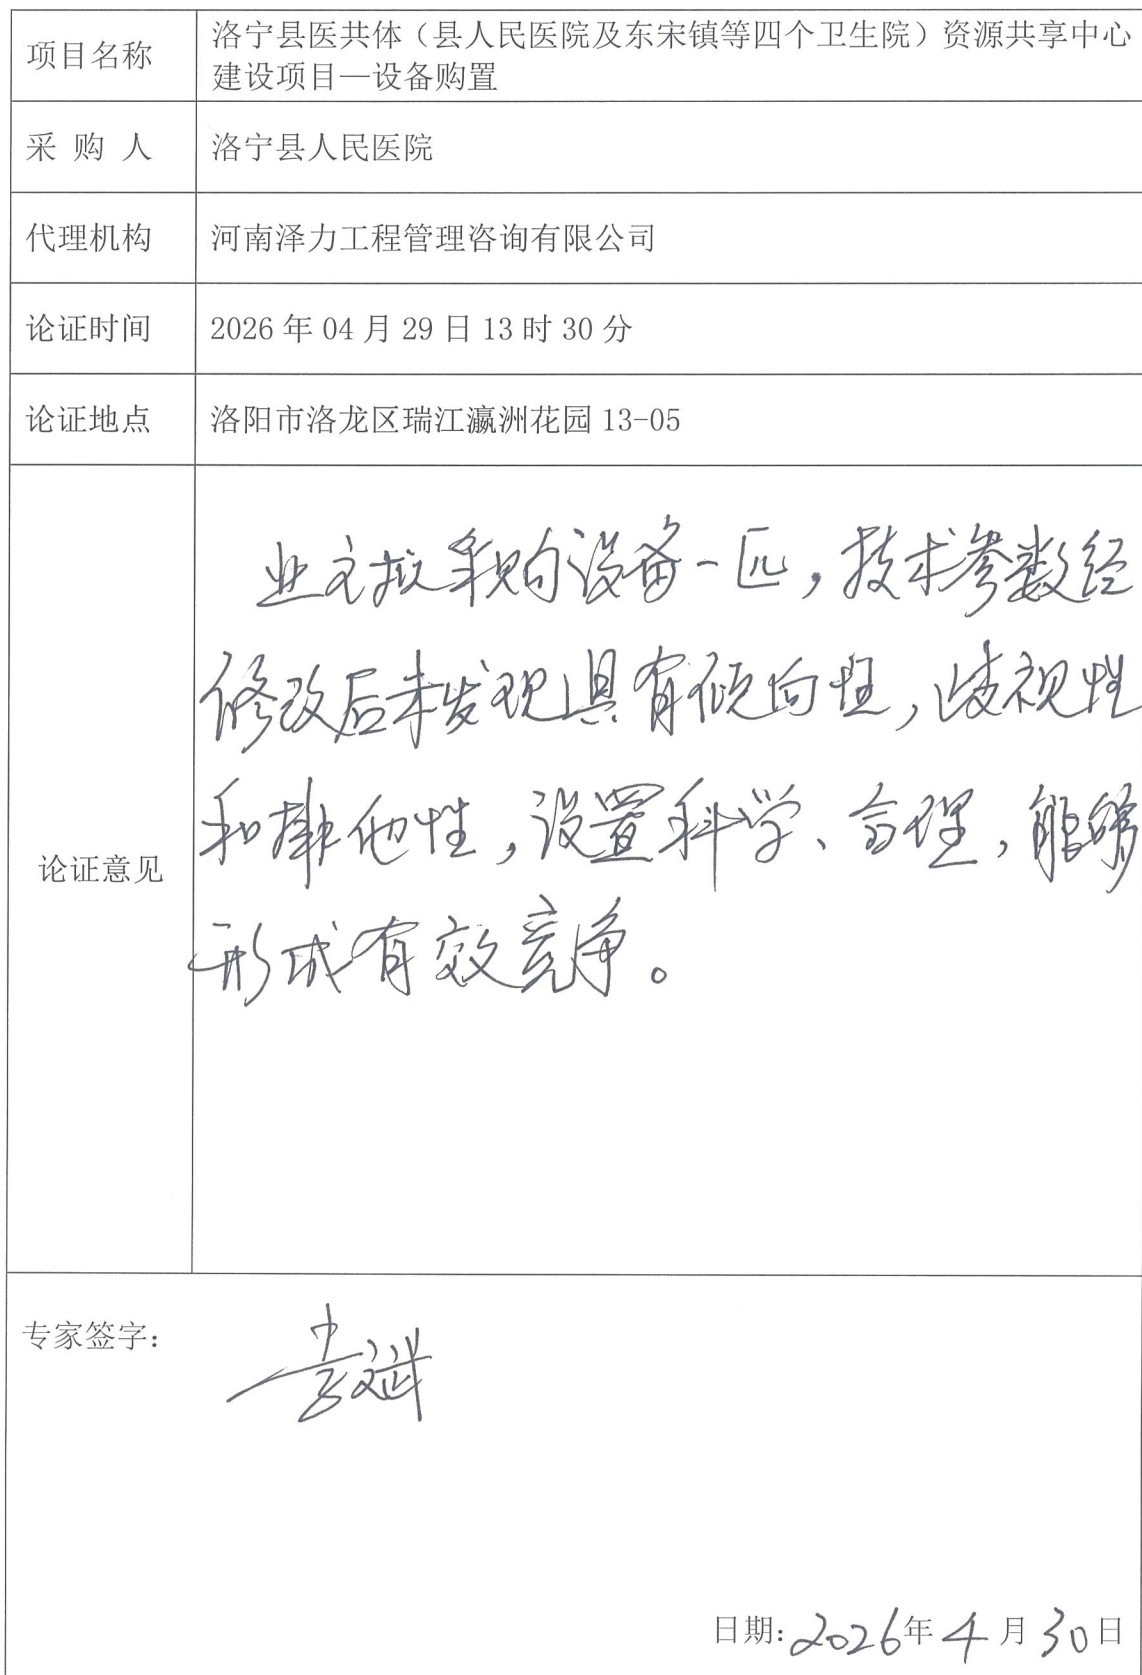 项目名称
洛宁县医共体（县人民医院及东宋镇等四个卫生院）资源共享中心
建设项目—设备购置
采 购 人
洛宁县人民医院
代理机构
河南泽力工程管理咨询有限公司
论证时间
2026 年 04 月 29 日 13 时 30 分
论证地点
洛阳市洛龙区瑞江瀛洲花园 13-05
论证意见
业主拟采购设备一匹，技术参数经
修改后未发现具有倾向性，歧视性
和排他性，设置科学、合理，能够
形成有效竞争。
专家签字：
斌
日期：2026年 4 月 30 日